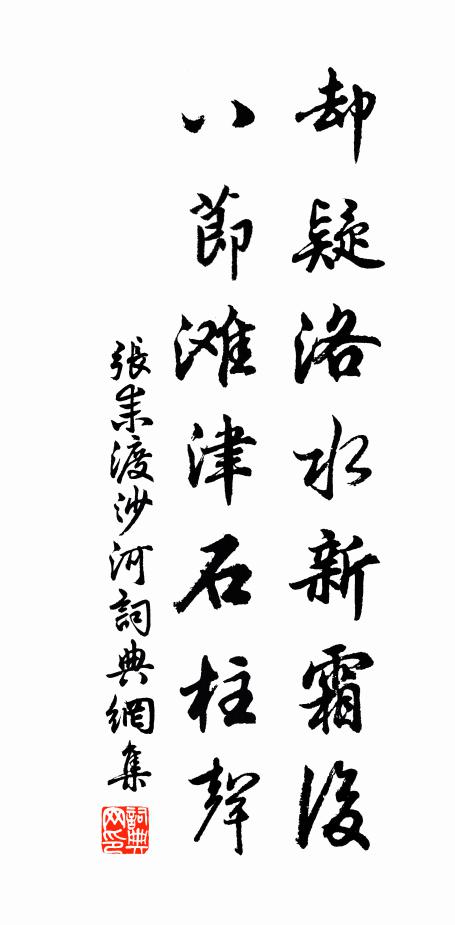 却疑洛水新霜後
八節滩津石柱聲
張耒渡沙河詞典網集
詞典網印